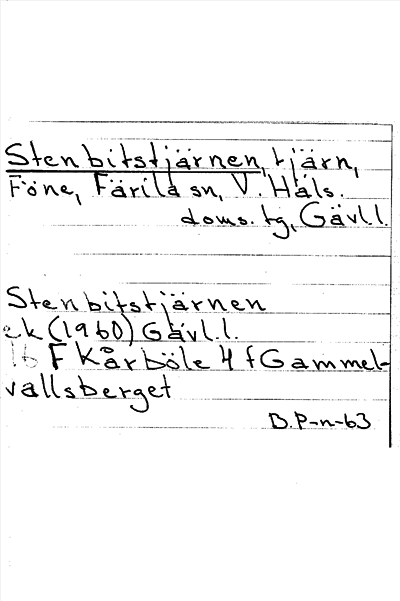 Stenbitstjärnen, tjärn,
Föne, Färila sn, V. Häls.
doms. tg, Gävl.l.
Stenbitstjärnen
ek (1960) Gävl.l.
16 F Kårböle 4 f Gammel-
vallsberget
B. P-n-63